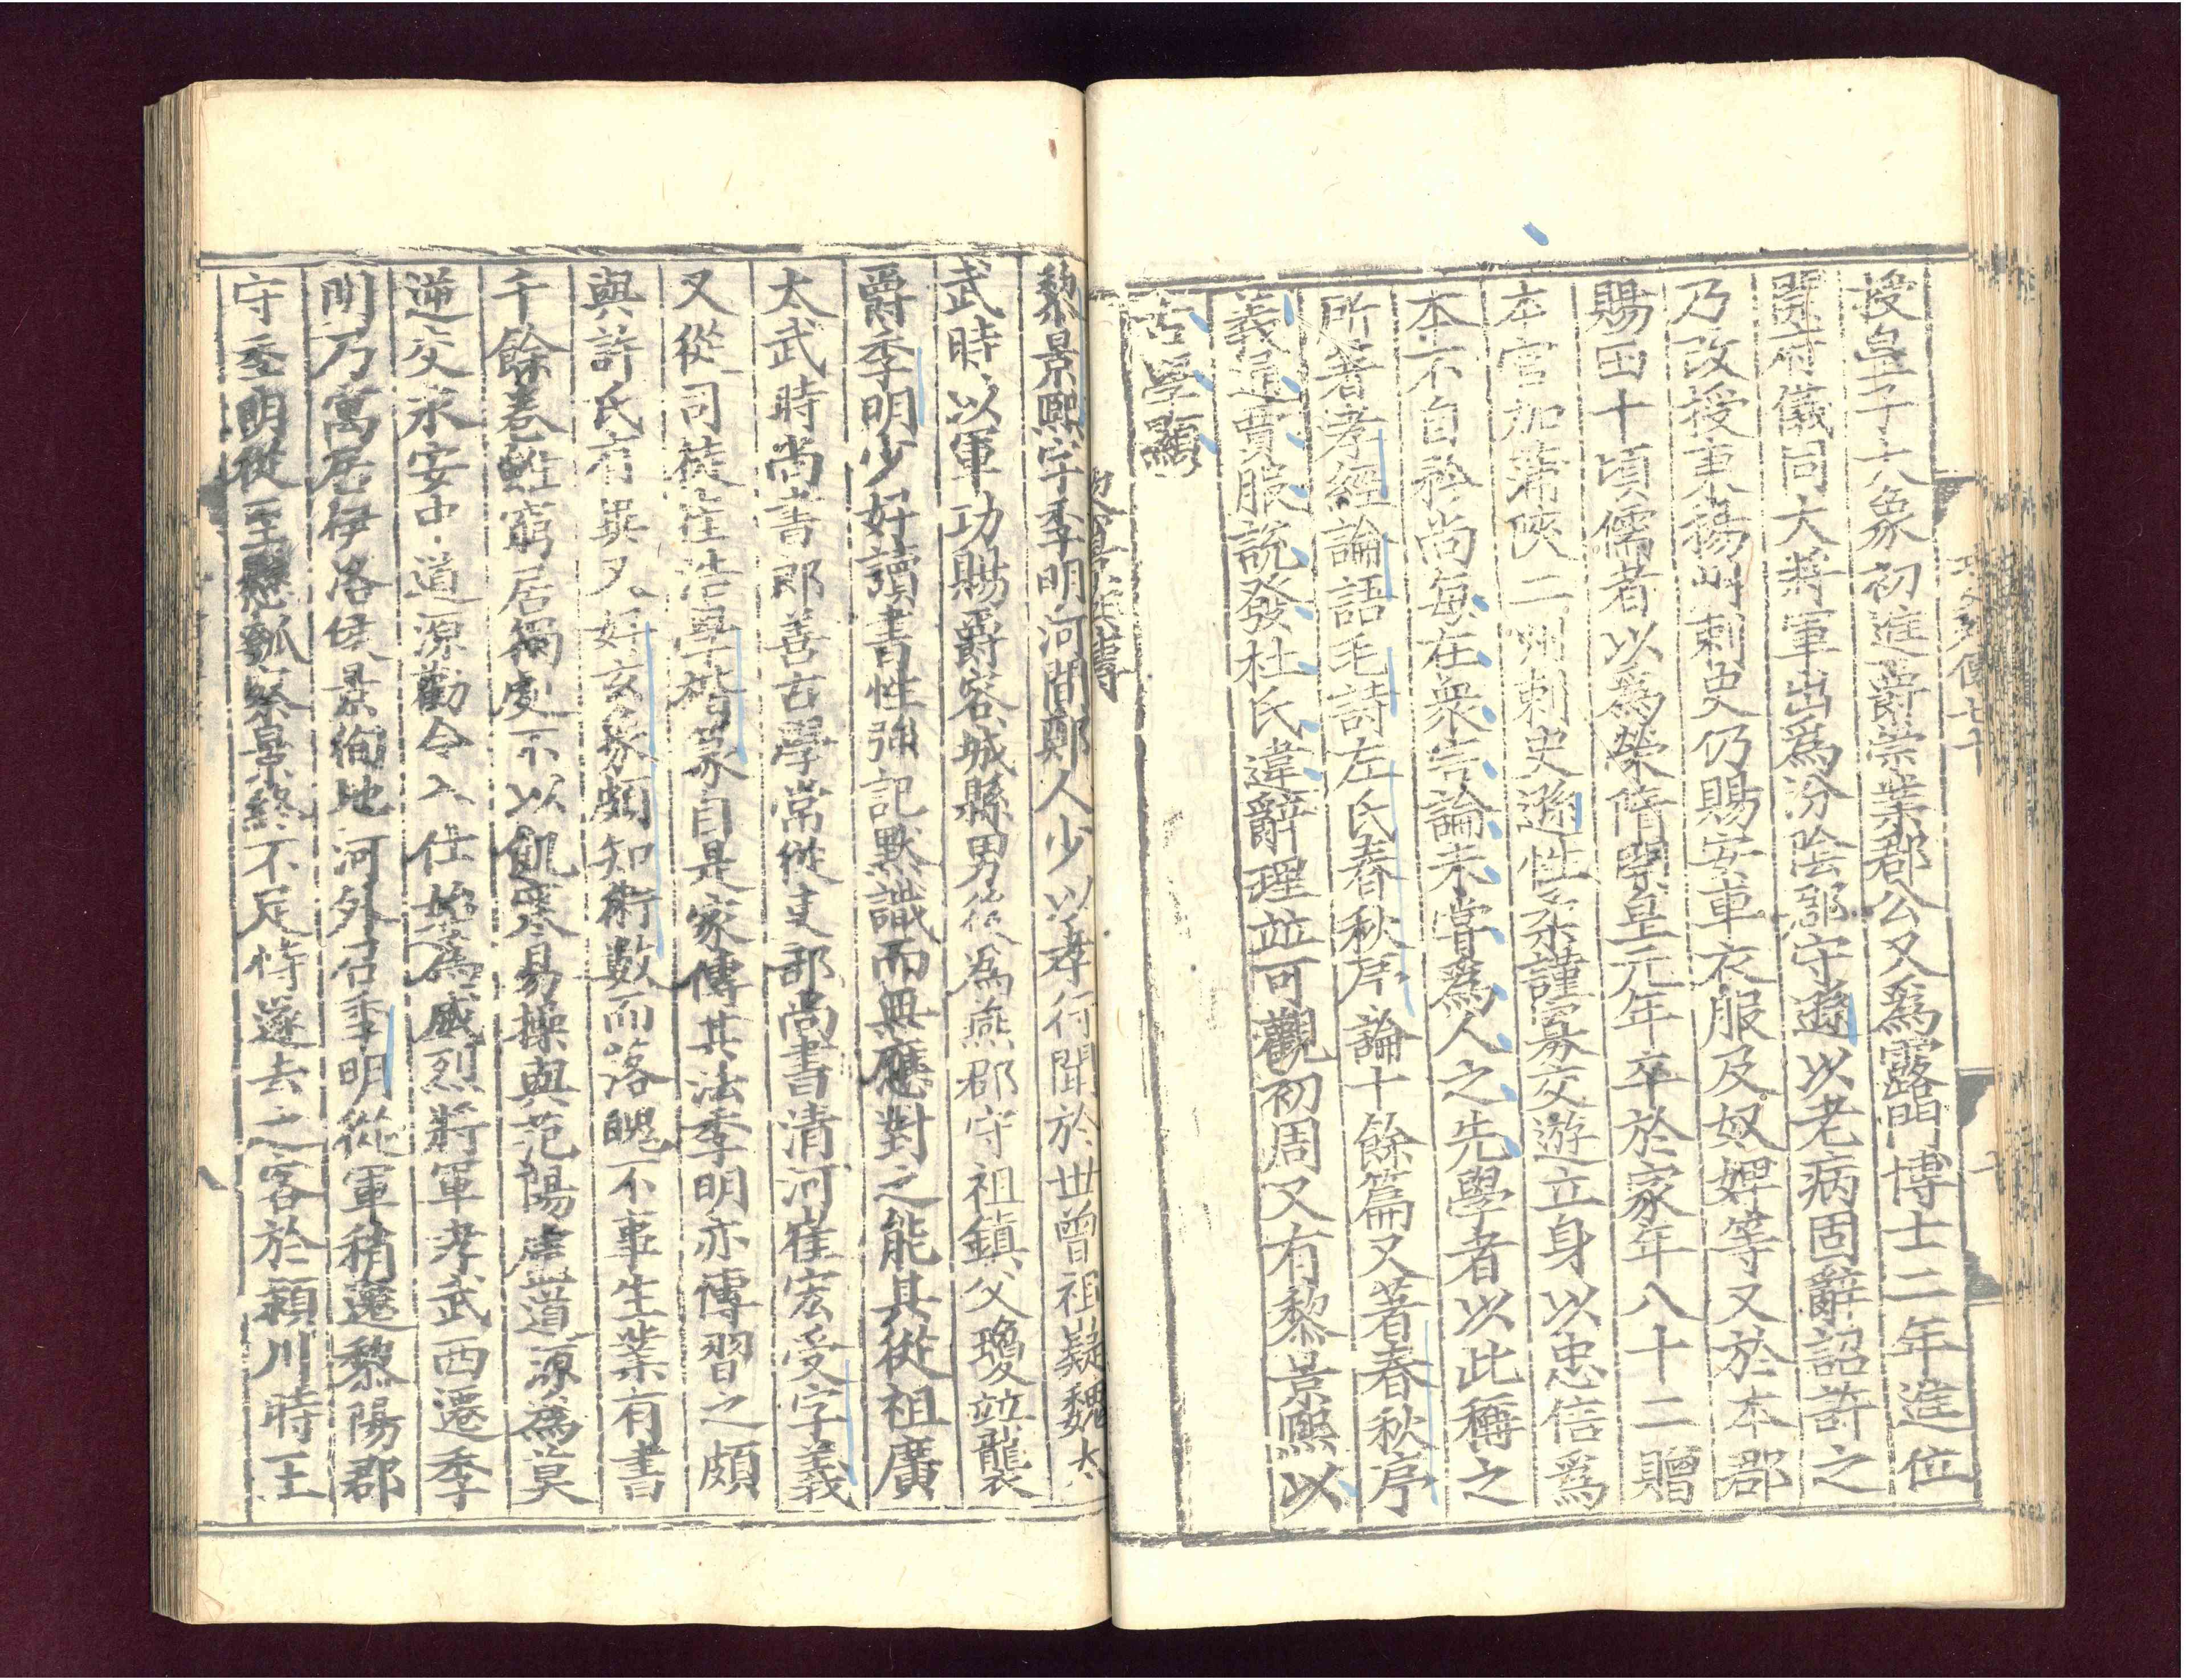 授皇子十六象初進爵崇業郡公又爲露門博士二年進位
開府儀同大將軍出爲汾陰郡守遜以老病固辭詔許之
乃改授東楊州刺史仍賜安車衣服及奴婢等又於本郡
賜田十頃儒者以爲榮隋開皇元年卒於家年八十二贈
本官加蒲陜二州刺史遜性柔謹寡交遊立身以忠信爲
本不自矜尚每在衆言論未嘗爲人之先學者以此稱之
所著孝經論語毛詩左氏春秋序論十餘篇又著春秋序
義通賈服說發杜氏違辭理並可觀初周又有黎景熙以
古學顯
黎景熙字季明河間鄚人少以孝行聞於世曾祖嶷魏太
武時以軍功賜爵容城縣男後爲燕郡守祖鎮父瓊並襲
爵季明少好讀書性強記默識而無應對之能其從祖廣
太武時尚書郎善古學常從吏部尚書清河崔宏受字義
又從司徒崔浩學楷篆自是家傳其法季明亦傳習之頗
與許氏有異又好玄象頗知術數而落魄不事生業有書
千餘卷雖窮居獨處不以飢寒易操與范陽盧道源爲莫
逆交永安中道源勸令入仕始爲威烈將軍孝武西遷季
明乃寓居伊洛侯景徇地河外召季明從軍稍遷黎陽郡
守季明從至懸瓠察景終不足恃遂去之客於潁川時王
八